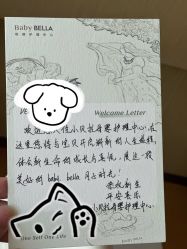 Baby BELLA
Welcome Letter
欢迎入住小贝拉母婴护理中心，在
这里您将与宝贝开启崭新的人生旅程，
体会新生命的成长与喜悦，度过一段
美好的 baby bella 月子时光！
恭祝新生
平安喜乐
小贝拉母婴护理中心。
One Self One Life